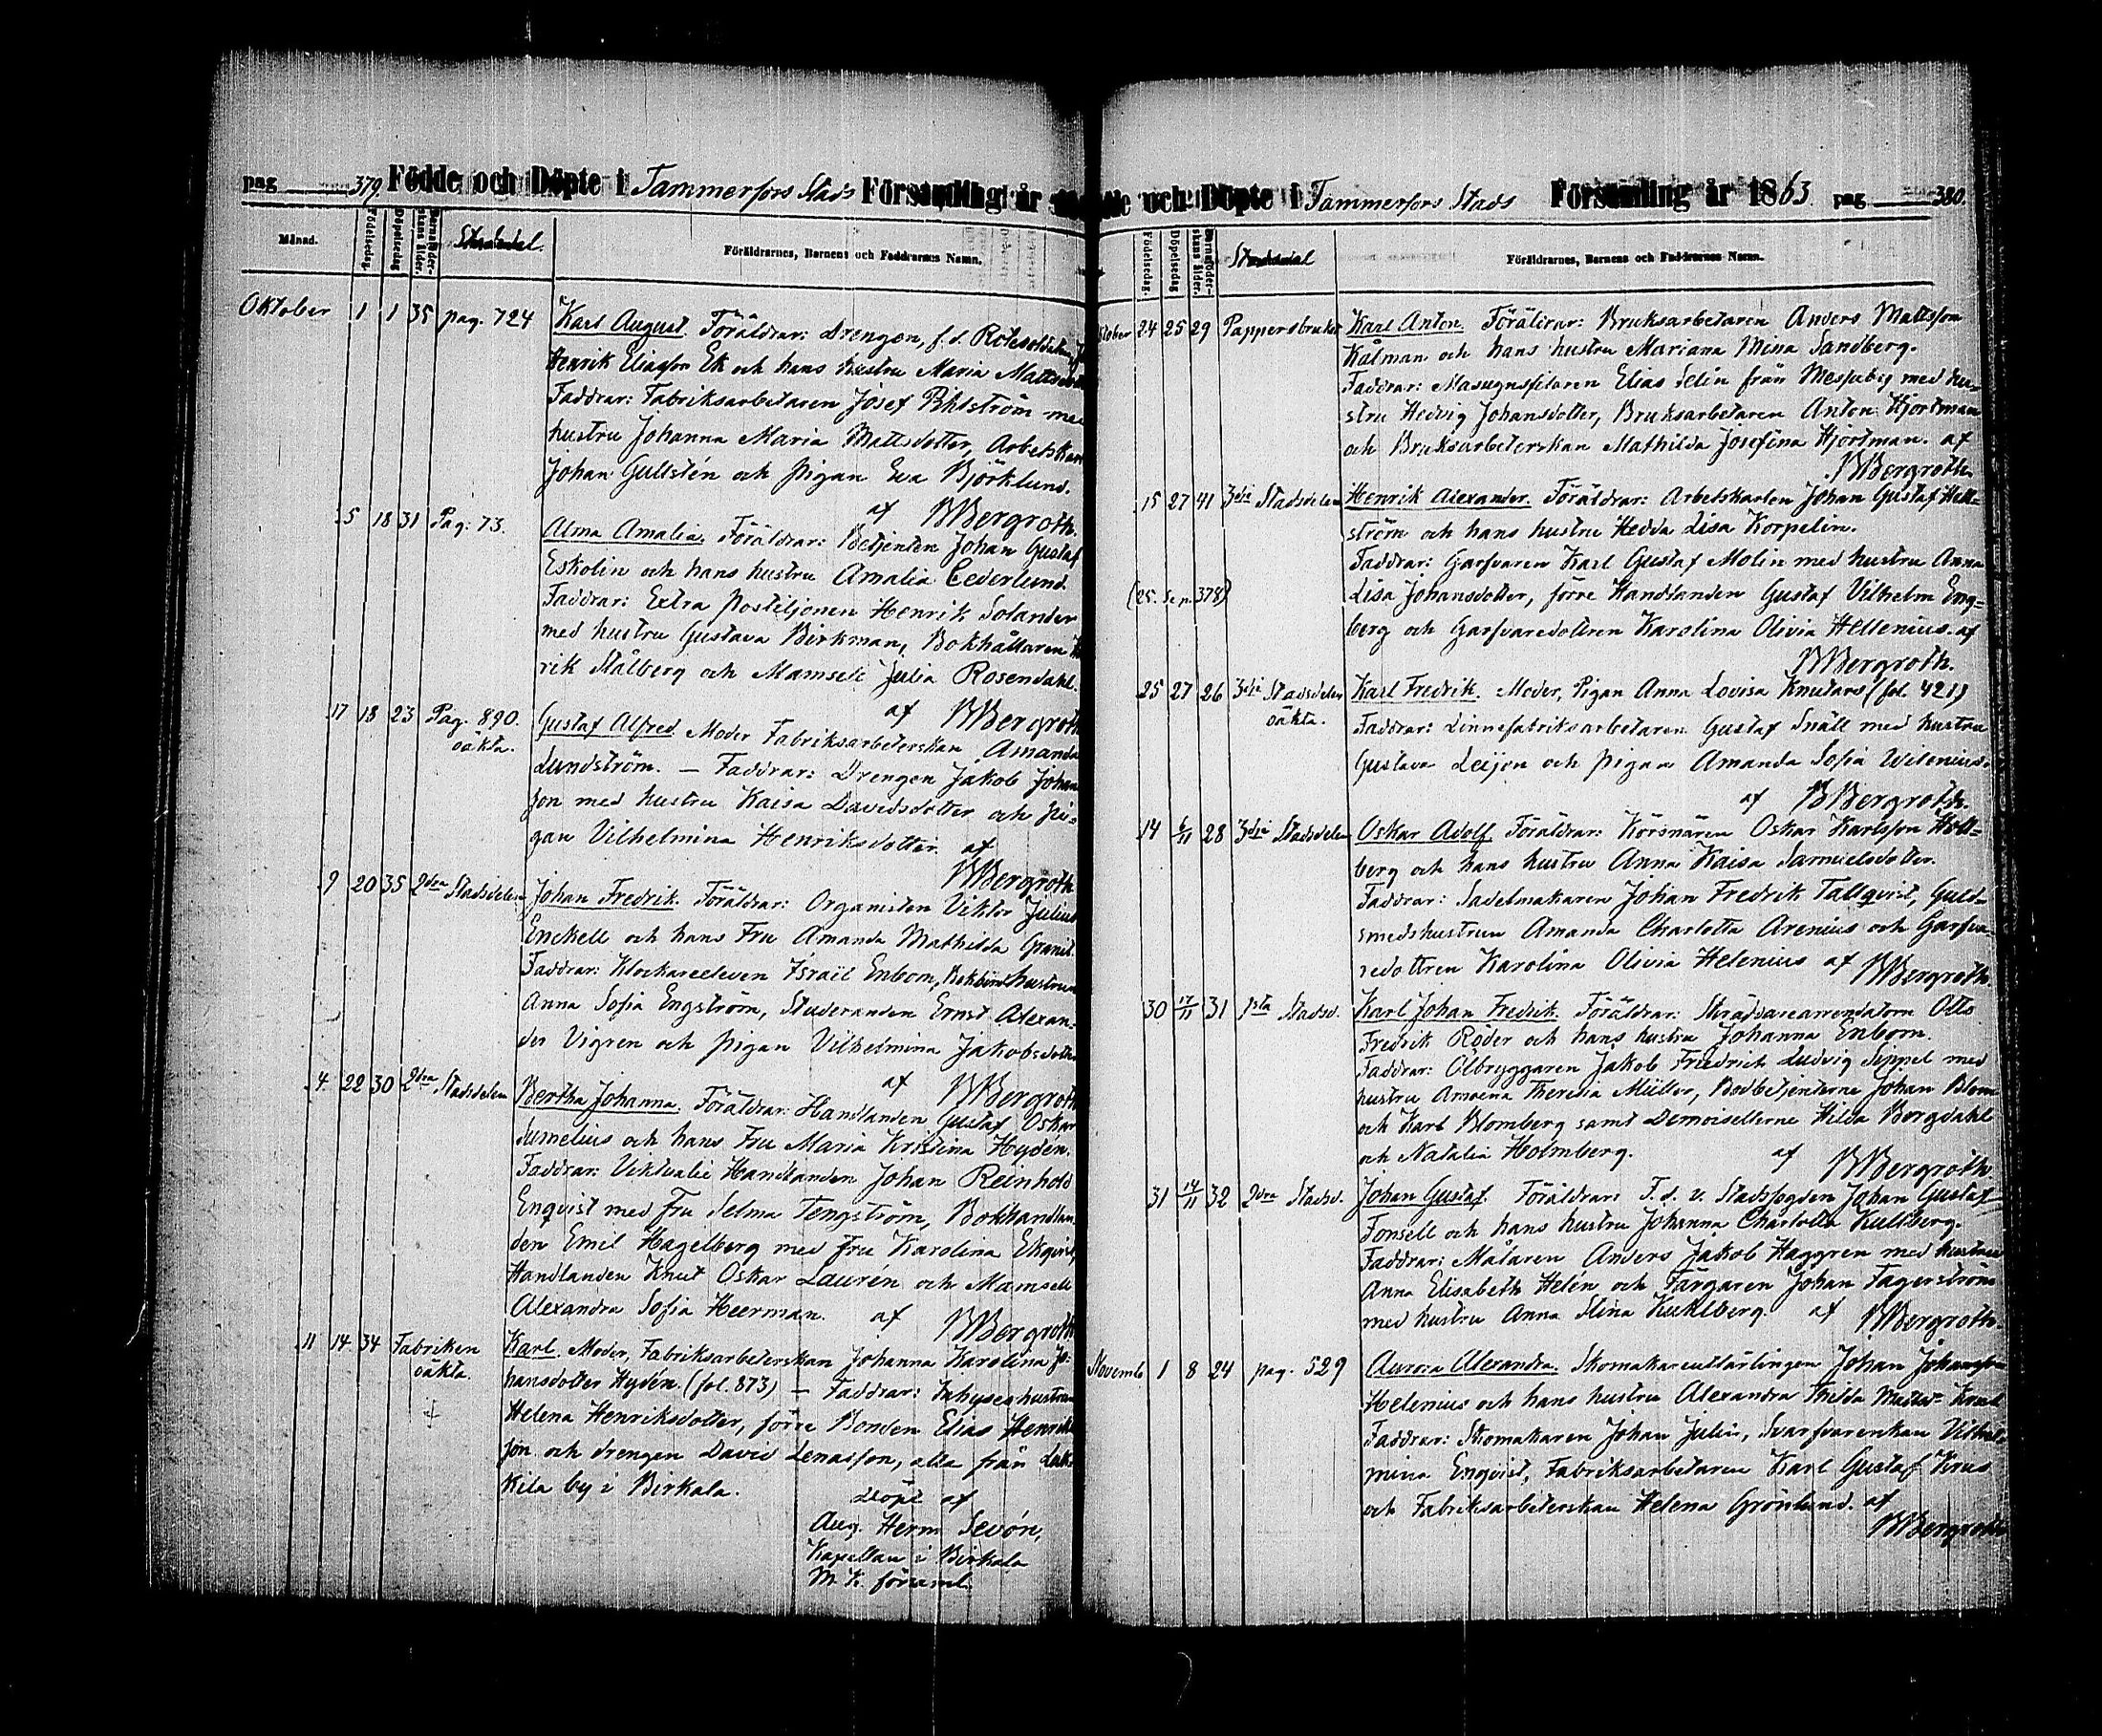 pag 379 Födde och Döpte i Tammerfors Stads Församling år
Månad. Födelsedag. Döpelsedag Barnaföderskans ålder. Föräldrarnes, Barnens och Faddrarnes Namn.
Oktober 1 1 35 pag. 724 Karl August. Föräldrar: Drengen, f.d. Rotesoldaten
Henrik Eliasson Ek och hans hustru Maria Mattsdotter
Faddrar: Fabriksarbetaren Josef Pihlström med
hustru Johanna Maria Mattsdotter, Arbetskarl
Johan Gullstén och pigan Eva Björklund.
af BBergroth.
5 18 31 Pag. 73. Alma Amalia. Föräldrar: Betjenten Johan Gustaf
Eskolin och hans hustru Amalia Cederlund.
Faddrar: Extra postiljonen Henrik Solander
med hustru Gustava Birkman, Bokhållaren
rik Stålberg och Mamsell Julia Rosendahl.
af BBergroth
17 18 23 Pag. 890. Gustaf Alfred. Moder Fabriksarbeterskan Amanda
oäkta.
Lundström. — Faddrar: Drengen Jakob Johans
son med hustru Kaisa Davidsdotter och pi-
gan Vilhelmina Henriksdotter. af
BBergroth
9 20 35 2dra Stadsdelen Johan Fredrik. Föräldrar: Organisten Viktor Julius
Enckell och hans Fru Amanda Mathilda Granit.
Faddrar: Klockareeleven Israël Enbom, hustrun
Anna Sofia Engström, Studeranden Ernst Alexan-
der Vigren och pigan Vilhelmina Jakobsdotter
af BBergroth
4 22 30 2dra Stadsdelen Bertha Johanna. Föräldrar: Handlanden Gustaf Oskar
Sumelius och hans Fru Maria Kristina Hydén.
Faddrar: Viktualie Handlanden Johan Reinhold
Enqvist med Fru Selma Tengström, Bokhandlan
den Emil Hagelberg med Fru Karolina Ekqvist,
Handlanden Knut Oskar Laurén och Mamsell
Alexandra Sofia Heerman. af BBergroth
11 14 34 Fabriken Karl. Moder, Fabriksarbeterskan Johanna Karolina Jo-
oäkta.
hansdotter Hydén. (fol. 873) — Faddrar: Inhyseshustrun
Helena Henriksdotter, förre Bonden Elias Henriks
son och drengen David Lenasson, alla från
kila by i Birkala.
Döpt af
Aug. Herm. Sevón,
Kapellan i Birkala
M. K. församl.
och Döpte i Tammerfors Stads Församling år 1863 pag 380.
Födelsedag. Döpelsedag Barnaföderskans ålder. Föräldrarnes, Barnens och Faddrarnes Namn.
tober 24 25 29 Pappersbruket Karl Anton. Föräldrar: Bruksarbetaren Anders Mattsson
Kålman och hans hustru Mariana Mina Sandberg.
Faddrar: Elias Selin från med hu-
stru Hedvig Johansdotter, Bruksarbetaren Anton Hjortman
och Bruksarbeterskan Mathilda Josefina Hjortman. af
BBergroth.
15 27 41 3dje Stadsdelen Henrik Alexander. Föräldrar: Arbetskarlen Johan Gustaf Hell-
ström och hans hustru Hedda Lisa Korpelin.
Faddrar: Garfvaren Karl Gustaf Molin med hustru Anna
(25. Se p. 378) Lisa Johansdotter, förre Handlanden Gustaf Vilhelm Eng-
berg och Garfvaredottren Karolina Olivia Hellenius. af
BBergroth.
25 27 26 3dje Stadsdelen Karl Fredrik. Moder, Pigan Anna Lovisa Knutars (fol. 421)
oäkta.
Faddrar: Linnefabriksarbetaren Gustaf Snäll med hustru
Gustava Leijon och pigan Amanda Sofia Wilenius.
af BBergroth.
14 6/11 28 3dje Stadsdelen Oskar Adolf. Föräldrar: Körsnären Oskar Karlsson Holl-
berg och hans hustru Anna Kaisa Samuelsdotter.
Faddrar: Sadelmakaren Johan Fredrik Tallqvist, Guld-
smedshustrun Amanda Charlotta Arenius och Garfva
redottren Karolina Olivia Helenius af BBergroth.
30 17/11 31 1sta Stadsd. Karl Johan Fredrik. Föräldrar: Skräddarearrendatorn Otto
Fredrik Röder och hans hustru Johanna Enbom.
Faddrar: Ölbryggaren Jakob Friedrich Ludvig Seppel med
hustru Amoena Theresia Müller, Bodbetjenterne Johan Blom
och Karl Blomberg samt Demoisellerne Hilda Borgdahl
och Natalia Holmberg. af BBergroth
31 14/11 32 2dra Stadsd. Johan Gustaf. Föräldrar: T.f. v. Stadsfogden Johan Gustaf
Fonsell och hans hustru Johanna Charlotta Kullberg.
Faddrar: Målaren Anders Jakob Haggren med hustru
Anna Elisabeth Helén och Färgaren Johan Fagerström
med hustru Anna Stina Kuhlberg. af BBergroth.
Novemb 1 8 24 pag. 529 Aurora Alexandra. Skomakareutlärlingen Johan Johansson
Helenius och hans hustru Alexandra
Faddrar: Skomakaren Johan Julin, Svarfvarenkan Vilhel-
mina Enqvist, Fabriksarbetaren Karl Gustaf Krus
och Fabriksarbeterskan Helena Grönlund. af
BBergroth